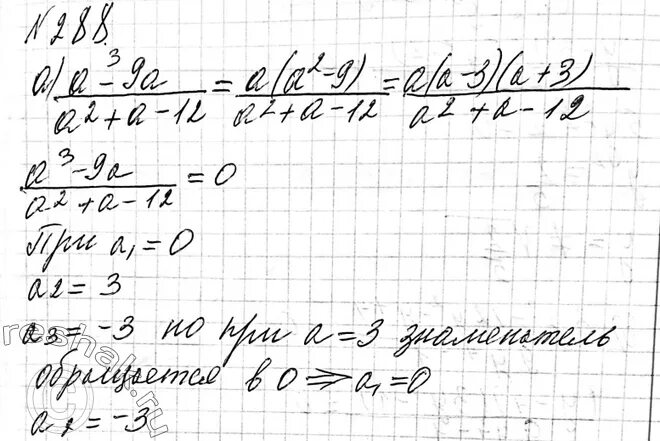 № 288.
а) a³-9a / a²+a-12 = a(a²-9) / a²+a-12 = a(a-3)(a+3) / a²+a-12
a³-9a / a²+a-12 = 0
При a₁=0
a₂=3
a₃=-3 но при a=3 знаменатель
обращается в 0 ⇒ a₁=0
a₂=-3